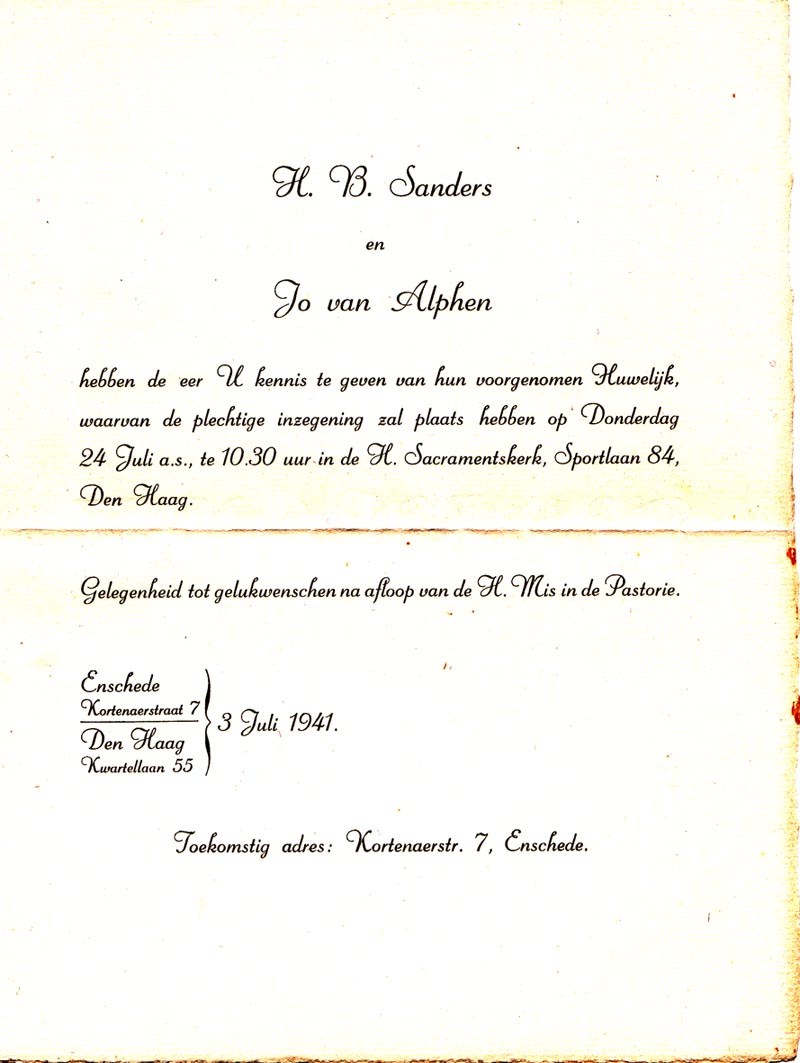 H. B. Sanders
en
Jo van Alphen
hebben de eer U kennis te geven van hun voorgenomen Huwelijk,
waarvan de plechtige inzegening zal plaats hebben op Donderdag
24 Juli a.s., te 10.30 uur in de H. Sacramentskerk, Sportlaan 84,
Den Haag.
Gelegenheid tot gelukwenschen na afloop van de H. Mis in de Pastorie.
Enschede
Kortenaerstraat 7
Den Haag
Kwartellaan 55
3 Juli 1941.
Toekomstig adres: Kortenaerstr. 7, Enschede.